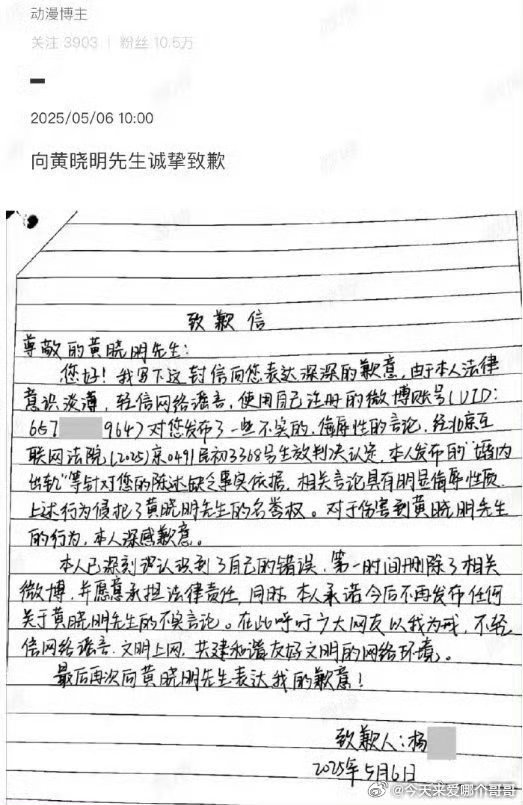 动漫博主
关注 3903 | 粉丝 10.5万
2025/05/06 10:00
向黄晓明先生诚挚致歉
致歉信
尊敬的黄晓明先生:
您好!我写下这封信向您表达深深的歉意,由于本人法律
意识淡薄,轻信网络谣言,使用自己注册的微博账号(UID:
657 964)对您发布了一些不实的、侮辱性的言论,经北京互
联网法院(2025)京0491民初3368号生效判决认定,本人发布的"婚内
出轨"等针对您的陈述缺乏事实依据,相关言论具有明显侮辱性质
上述行为侵犯了黄晓明先生的名誉权。对于伤害到黄晓明先生
的行为,本人深感歉意。
本人已深刻认识到了自己的错误,第一时间删除了相关
微博,并愿意承担法律责任,同时,本人承诺今后不再发布任何
关于黄晓明先生的不实言论。在此呼吁广大网友以我为戒,不轻
信网络谣言,文明上网,共建和谐友好文明的网络环境。
最后再次向黄晓明先生表达我的歉意!
致歉人:杨
2025年5月6日
@今天来爱哪个哥哥